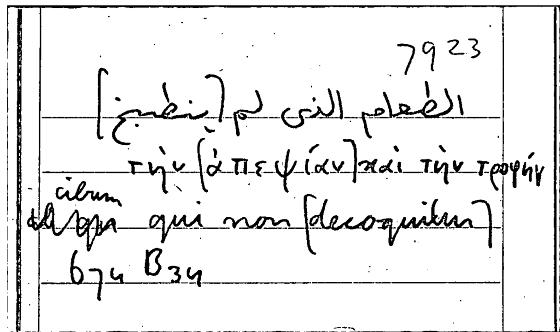 7923
الطعام الذى لم [ينطبخ]
τὴν [ἀπεψίαν] καὶ τὴν τροφήν
cibum
qui non [decoquitur]
674 B34